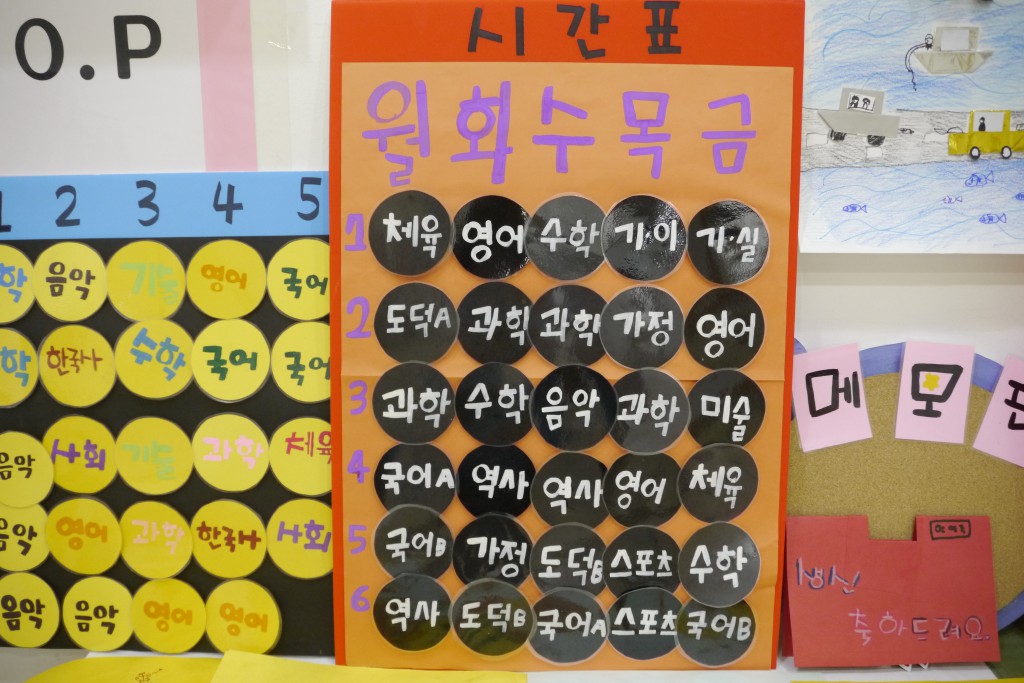 O.P
2 3 4 5
학 음악 기술 영어 국어
학 한국사 수학 국어 국어
음악 사회 기술 과학 체육
음악 영어 과학 한국사 사회
음악 음악 영어 영어
시간표
월 화 수 목 금
1 체육 영어 수학 기·이 기·실
2 도덕A 과학 과학 가정 영어
3 과학 수학 음악 과학 미술
4 국어A 역사 역사 영어 체육
5 국어B 가정 도덕B 스포츠 수학
6 역사 도덕B 국어A 스포츠 국어B
메모판
생신
축하드려요